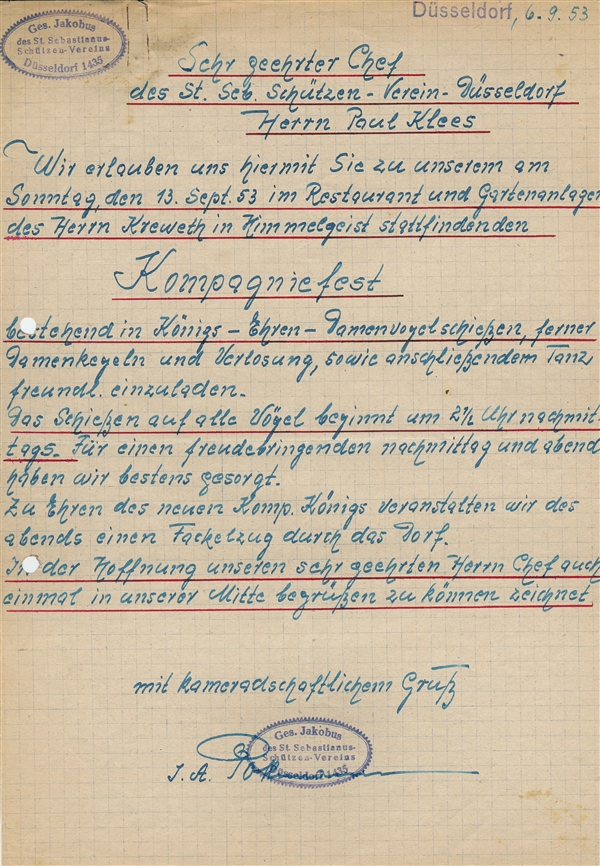 Ges. Jakobus
des St. Sebastianus-
Schützen-Vereins
Düsseldorf 1435
Düsseldorf, 6.9.53
Sehr geehrter Chef
des St. Seb. Schützen-Verein-Düsseldorf
Herrn Paul Klees
Wir erlauben uns hiermit Sie zu unserem am
Sonntag, den 13. Sept. 53 im Restaurant und Gartenanlagen
des Herrn Kreweth in Himmelgeist stattfindenden
Kompagniefest
bestehend in Königs-Ehren-Damenvogelschießen, ferner
Damenkegeln und Verlosung, sowie anschließendem Tanz
freundl. einzuladen.
Das Schießen auf alle Vögel beginnt um 2½ Uhr nachmit-
tags. Für einen freudebringenden nachmittag und abend
haben wir bestens gesorgt.
Zu Ehren des neuen Komp. Königs veranstalten wir des
abends einen Fackelzug durch das Dorf.
In der Hoffnung unseren sehr geehrten Herrn Chef auch
einmal in unserer Mitte begrüßen zu können zeichnet
mit kameradschaftlichem Gruß
Ges. Jakobus
des St. Sebastianus-
Schützen-Vereins
Düsseldorf 1435
I.A.